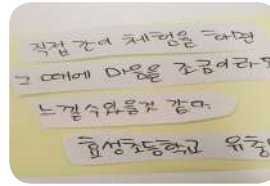 직접 간이 체험을 하면
그 때에 마음을 조금이라도
느낄수있을것 같다.
효성초등학교 유